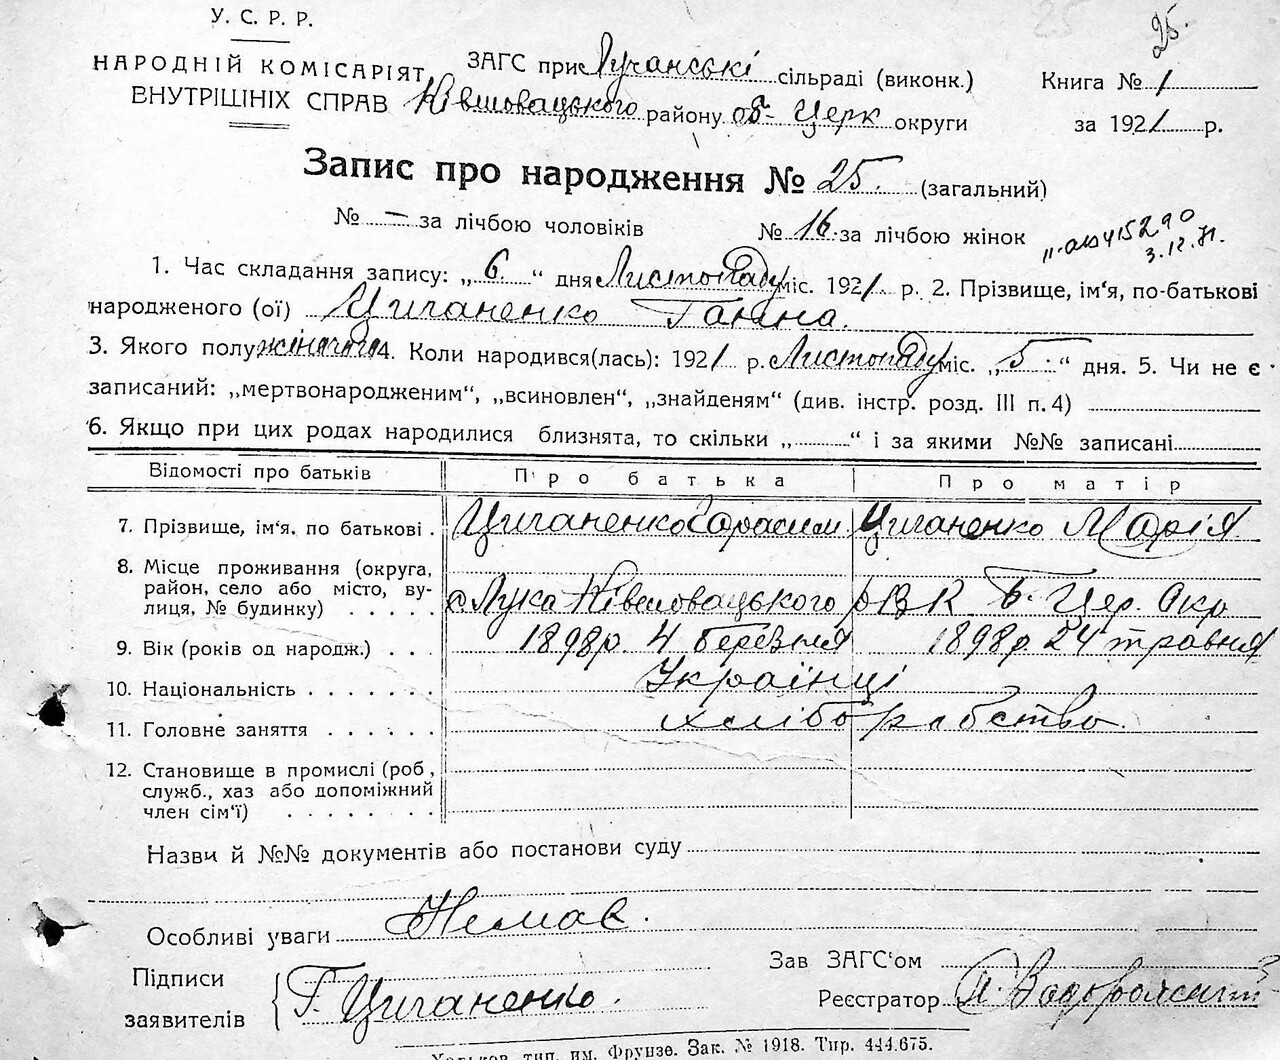 25.
У. С. Р. Р.
НАРОДНІЙ КОМІСАРІЯТ
ВНУТРІШНІХ СПРАВ
ЗАГС при Лучанські сільраді (виконк.)
Ківшовацького району об- Церк округи
Книга № 1
за 1921 р.
Запис про народження № 25. (загальний)
№ — за лічбою чоловіків № 16. за лічбою жінок
415290
3.12.71.
1. Час складання запису: „6.“ дня Листопаду міс. 1921 р. 2. Прізвище, ім'я, по-батькові
народженого (ої) Циганенко Ганна.
3. Якого полу жіночого 4. Коли народився(лась): 1921 р. Листопаду міс. „5.“ дня. 5. Чи не є
записаний: „мертвонародженим“, „всиновлен“, „знайденям“ (див. інстр. розд. III п. 4)
6. Якщо при цих родах народилися близнята, то скільки „ “ і за якими №№ записані
Відомості про батьків Про батька Про матір
7. Прізвище, ім'я. по батькові . Циганенко Гарасим Циганенко Марія
8. Місце проживання (округа,
район, село або місто, ву-
лиця, № будинку) . . . . . с Лука Ківшовацького рВК Б. Цер. Окр
9. Вік (років од народж.) . . . 1898р. 4 березня 1898р. 24 травня
10. Національність . . . . . . . Українці
11. Головне заняття . . . . . . хліборобство.
12. Становище в промислі (роб.,
служб., хаз або допоміжний
член сім'ї) . . . . . . .
Назви й №№ документів або постанови суду
Особливі уваги Немає.
Підписи
заявителів
Г. Циганенко.
Зав ЗАГС'ом
Реєстратор
Харьков, тип. им. Фрунзе. Зак. № 1918. Тир. 444.675.